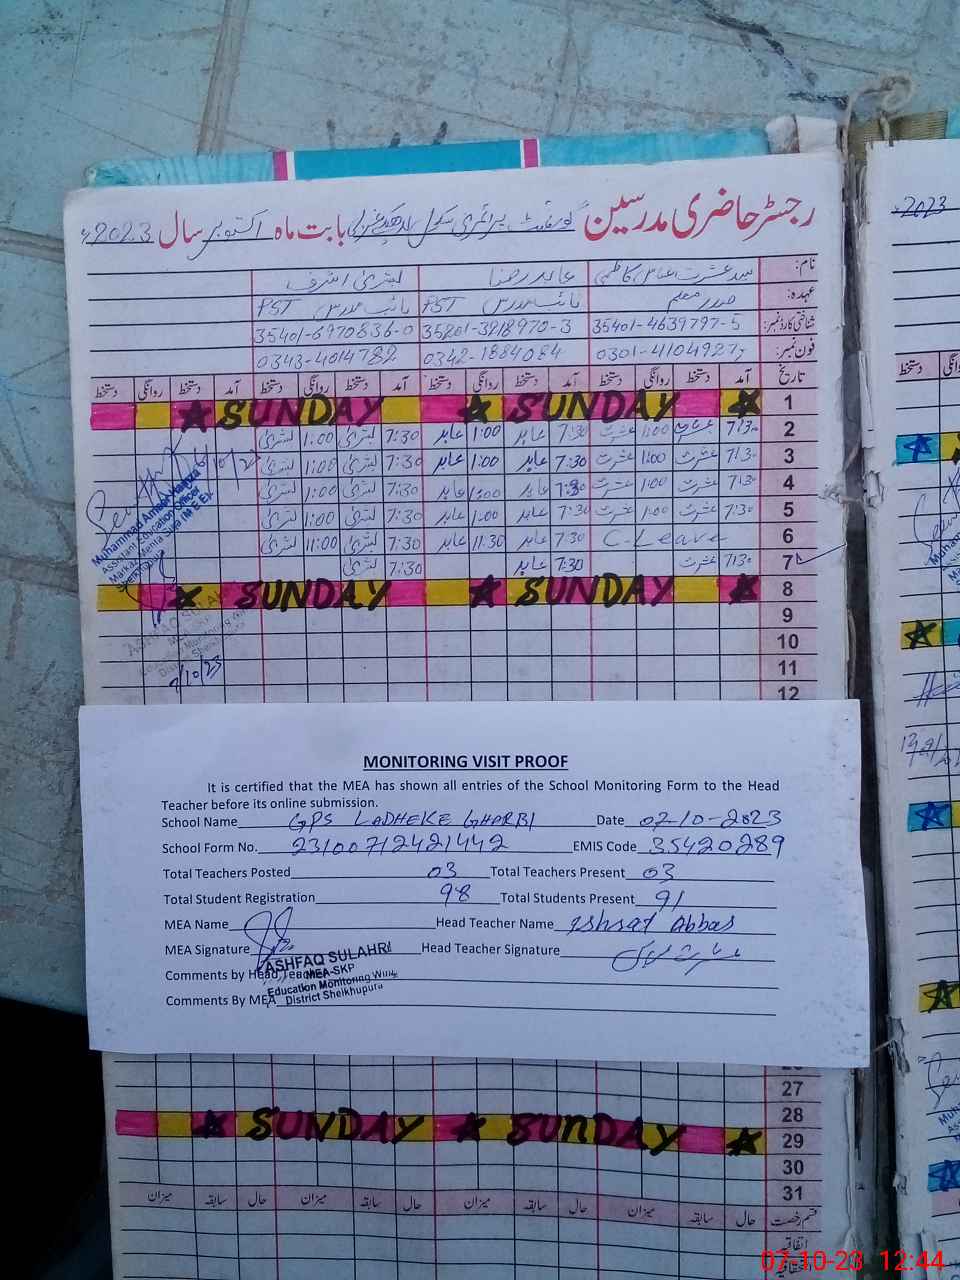 رجسٹر حاضری مدرسین گورنمنٹ پرائمری سکول بابت ماہ اکتوبر سال 2023ء
2023
نام: سید عشرت عباس کاظمی عابد رضا لبنریٰ اشرف
عہدہ: صدر معلم نائب مدرس PST نائب مدرس PST
شناختی کارڈ نمبر: 35401-4639797-5 35201-3218970-3 35401-6970836-0
فون نمبر: 0301-4104927 0342-1884084 0343-4014782
تاریخ آمد دستخط روانگی دستخط آمد دستخط روانگی دستخط آمد دستخط روانگی دستخط آمد دستخط روانگی دستخط
1 SUNDAY SUNDAY
2 7:30 عشرت 1:00 عشرت 7:30 عابد 1:00 عابد 7:30 1:00
3 7:30 عشرت 1:00 عشرت 7:30 عابد 1:00 عابد 7:30 1:00
4 7:30 عشرت 1:00 عشرت 7:30 عابد 1:00 عابد 7:30 1:00
5 7:30 عشرت 1:00 عشرت 7:30 عابد 1:00 عابد 7:30 1:00
6 C-Leave 7:30 عابد 11:30 عابد 7:30 11:00
7 7:30 عشرت 7:30 عابد 7:30
8 SUNDAY SUNDAY
9
10
11
12
Assistant Education Officer
Markaz
ASHFAQ SULAHRI
MEA-SKP
Education Monitoring Wing
District Sheikhupura
7/10/23
MONITORING VISIT PROOF
It is certified that the MEA has shown all entries of the School Monitoring Form to the Head
Teacher before its online submission.
School Name GPS LADHEKE GHARBI Date 07-10-2023
School Form No. 23100712421442 EMIS Code 35420289
Total Teachers Posted 03 Total Teachers Present 03
Total Student Registration 98 Total Students Present 91
MEA Name Head Teacher Name Ishrat Abbas
MEA Signature Head Teacher Signature
Comments by Head Teacher
Comments By MEA
ASHFAQ SULAHRI
MEA-SKP
Education Monitoring Wing
District Sheikhupura
27
28
29 SUNDAY SUNDAY
30
31
قسم رخصت حال سابقہ میزان حال سابقہ میزان حال سابقہ میزان حال سابقہ میزان
اتفاقیہ
07-10-23 12:44